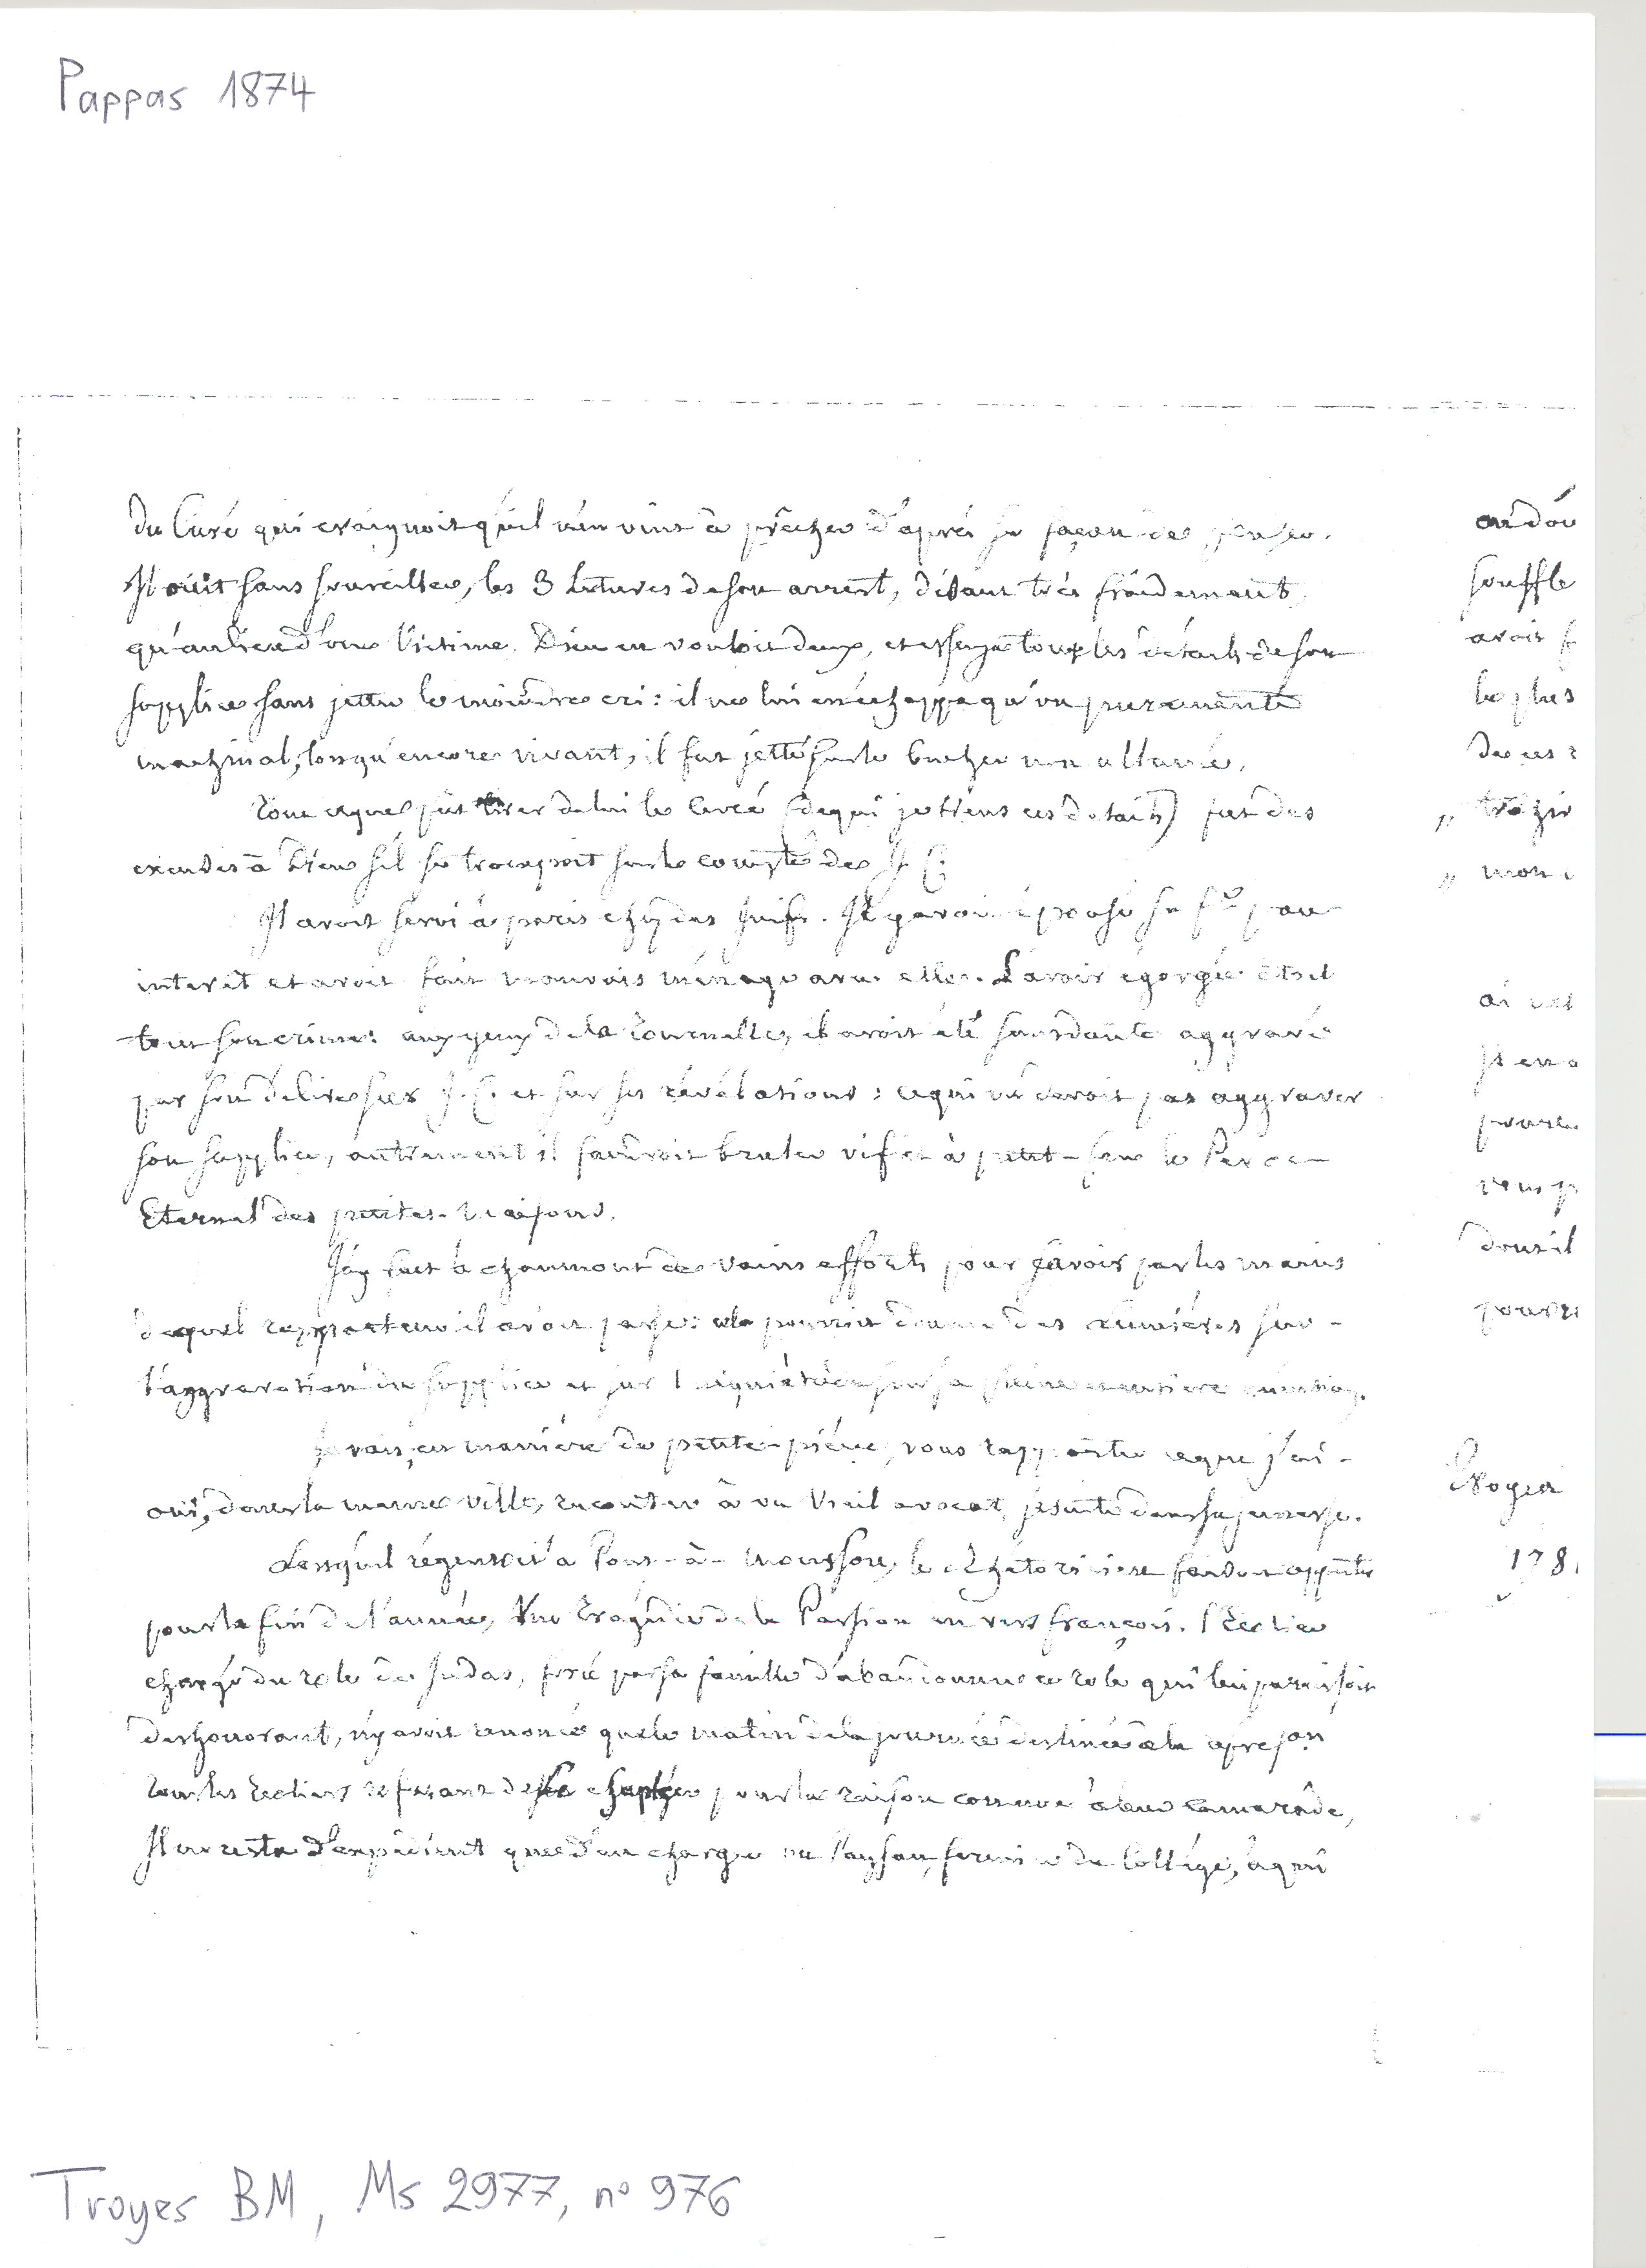 Pappas 1874
du Curé qui craignoit qu'il n'en vint à prêcher d'après sa façon de penser.
Il ouït sans sourciller, les 3 lectures de son arrest, disant très froidement,
qu'au lieu d'une Victime, Dieu en vouloit deux, et essuya tous les détails de son
supplice sans jetter le moindre cri : il ne lui en échappa qu'un purement
machinal, lorsqu'encore vivant, il fut jetté sur le bucher allumé.
Tout ce que put tirer de lui le Curé (de qui je tiens ces details) fut des
excuses à Dieu s'il se trompoit sur le compte de J. C.
Il avoit servi à paris chez des Juifs. Il y avoit épousé sa fe par
interêt et avoit fait mauvais ménage avec elle. L'avoir égorgée étoit
tout son crime : aux yeux de la Tournelle, il avoit été sans doute aggravé
par son delire sur J. C. et sur ses révélations : ce qui ne devoit pas aggraver
son supplice, autrement il faudroit bruler vif et à petit-feu le Pere
Eternel des petites-maisons.
J'ay fait à chaumont de vains efforts pour sçavoir par les mains
de quel rapporteur il avoit passé : cela pourroit donner des lumières sur
l'aggravation du supplice et sur
Je vais, en manière de petite-pièce, vous rapporter ce que j'ai
ouï, dans la même ville, raconter à un Vieil avocat, jesuite dans sa jeunesse.
Lorsqu'il régentoit à Pont-à-Mousson, le Rhétoricien fit apprendre
pour la fin de l'année, Une Tragédie de la Passion en vers françois. l'Ecolier
chargé du role de Judas, forcé par sa famille d'abandonner ce role qui lui paroissoit
deshonorant, n'y avoit renoncé que le matin de la journée destinée à la représon
tous les Ecoliers refusant de s'en charger pour la raison connue à leur camarade,
Il ne resta d'expédient que d'en charger un Paysan, fermier du Collége, à qui
souffle
avoit
le plus
de ces
" mon
dont il
178
Troyes BM, Ms 2977, n° 976